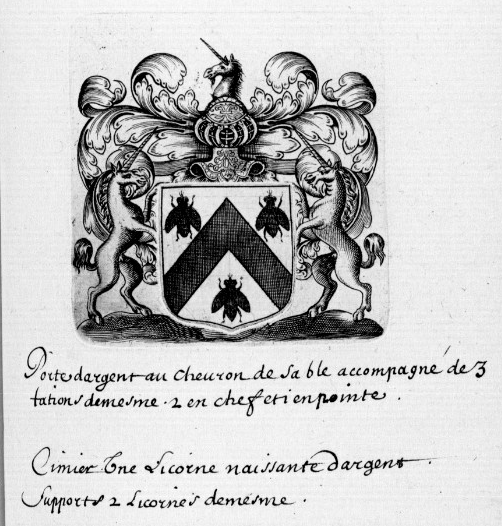 Porte dargent au cheuron de sable accompagné de 3
tations demesme . 2 en chef et i en pointe .
Cimier Vne Licorne naissante dargent .
Supports 2 Licornes demesme .